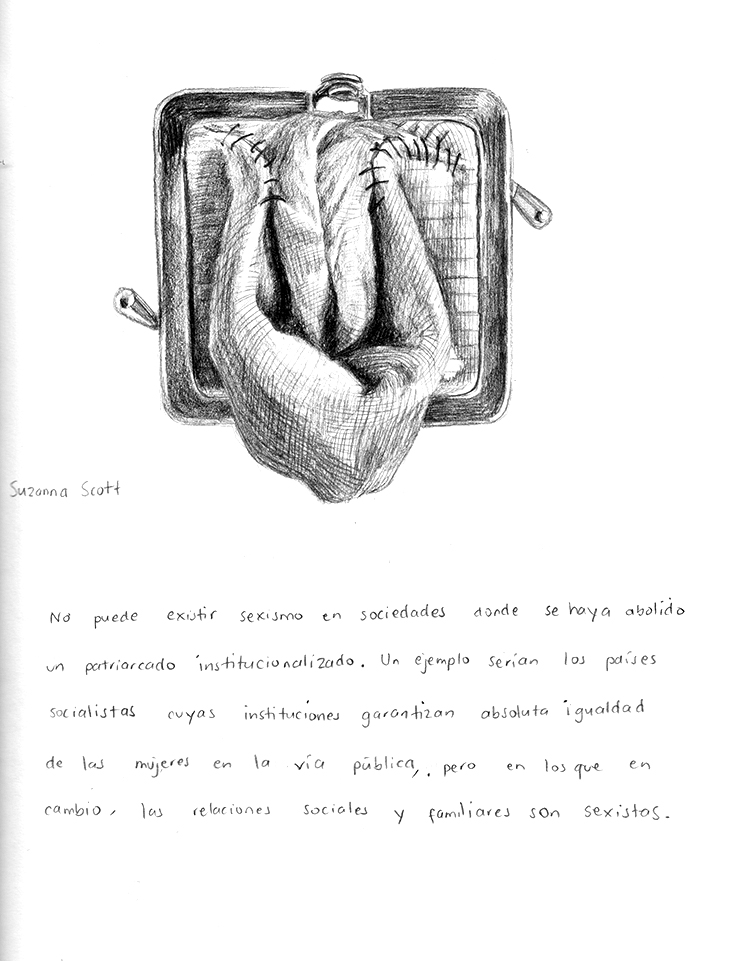 Suzanna Scott
No puede existir sexismo en sociedades donde se haya abolido
un patriarcado institucionalizado. Un ejemplo serían los países
socialistas cuyas instituciones garantizan absoluta igualdad
de las mujeres en la vía pública,, pero en los que en
cambio, las relaciones sociales y familiares son sexistas.